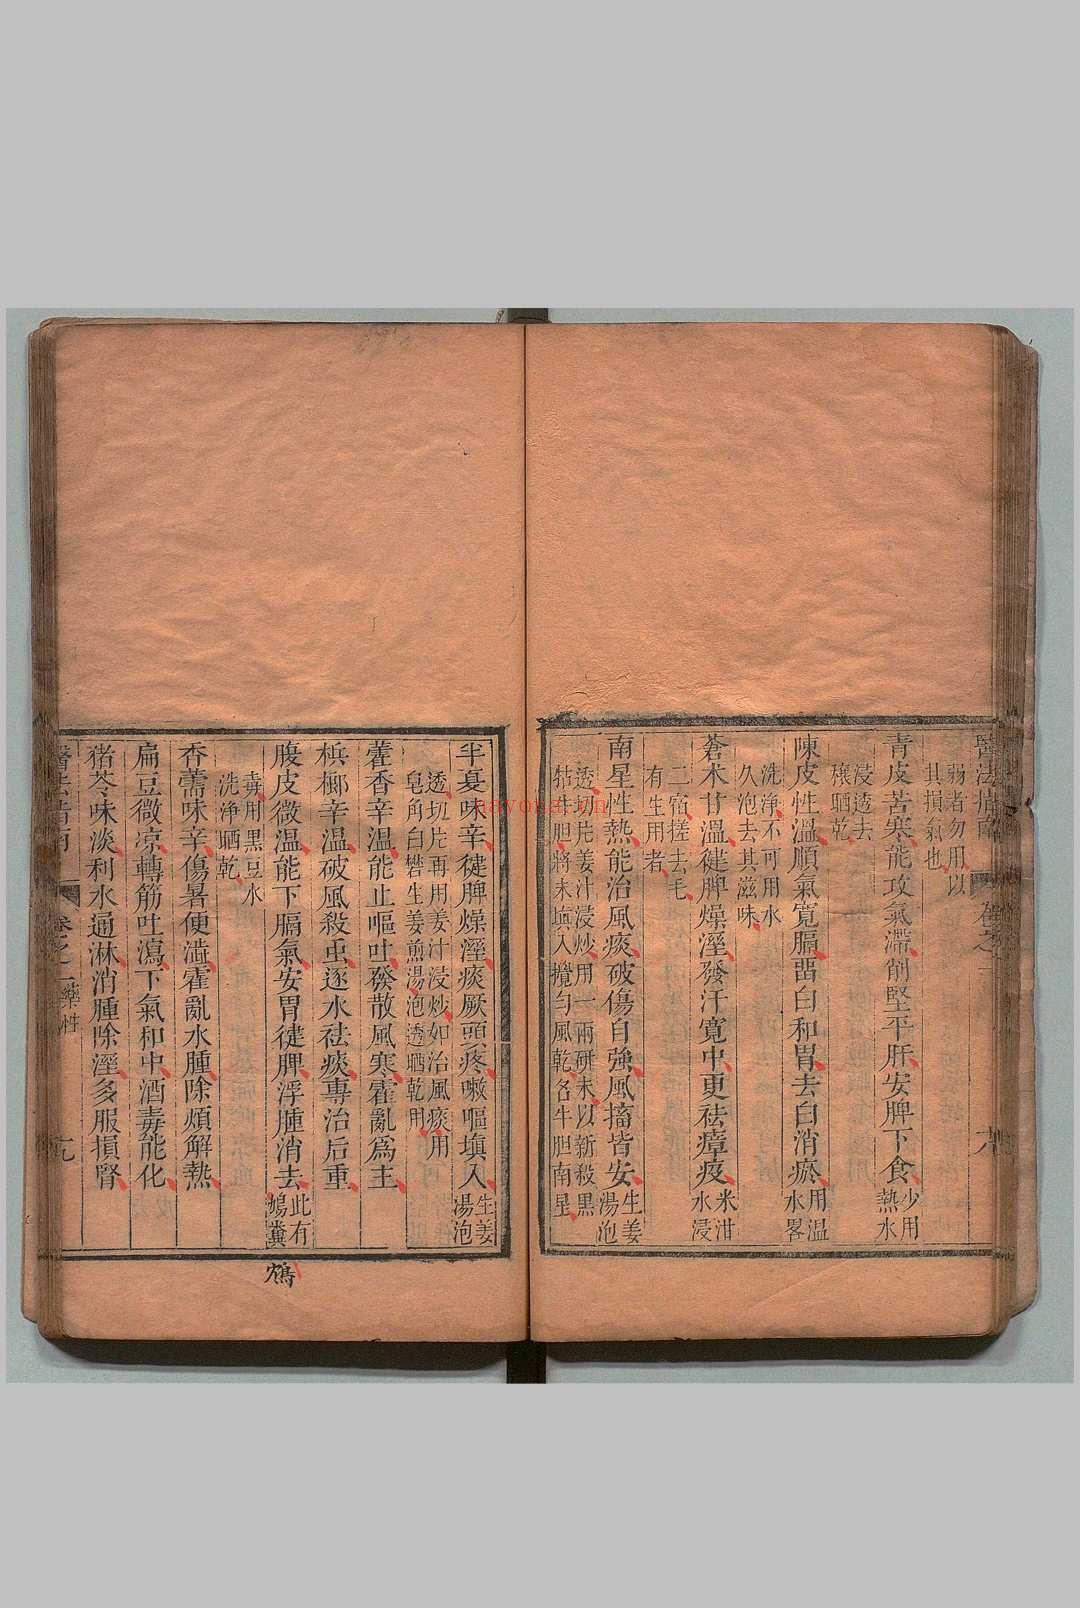 醫法指南 卷之一 十八
弱者勿用以
其損氣也
青皮苦寒能攻氣滯削堅平肝安脾下食少用熱水
浸透去
穰晒乾
陳皮性溫順氣寬膈畱白和胃去白消痰用溫水畧
洗淨不可用水
久泡去其滋味
蒼朮甘溫健脾燥溼發汗寬中更祛瘴疫米泔水浸
二宿搓去毛
有生用者
南星性熱能治風痰破傷自強風搐皆安生姜湯泡
透切片姜汁浸炒用一兩研末以新殺黑
牯牛胆將末塡入攪勻風乾名牛胆南星
半夏味辛健脾燥溼痰厥頭疼嗽嘔塡入生姜湯泡
透切片再用姜汁浸炒如治風痰用
皂角白礬生姜煎湯泡透晒乾用
藿香辛溫能止嘔吐發散風寒霍亂爲主
梹榔辛溫破風殺虫逐水祛痰專治后重
腹皮微溫能下膈氣安胃健脾浮腫消去此有鳩糞
毒用黑豆水
洗淨晒乾
香薷味辛傷暑便澁霍亂水腫除煩解熱
扁豆微凉轉筋吐瀉下氣和中酒毒能化
猪苓味淡利水通淋消腫除溼多服損腎
醫法指南 卷之一 藥性 十九
鴆
nayona.cn